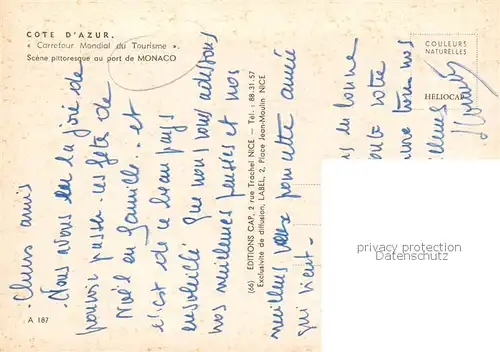 COTE D'AZUR.
« Carrefour Mondial du Tourisme ».
Scène pittoresque au port de MONACO
COULEURS
NATURELLES
HELIOCAP
Chers amis
Nous avons eu la joie de
pouvoir passer ces fêtes de
Noël en famille.. et
c'est de ce beau pays
ensoleillé que nous vous adressons
nos meilleures pensées et nos
meilleurs vœux pour cette année
qui vient -
(66) EDITIONS CAP, 2 rue Trachel NICE — Tél. : 88.31.57
Exclusivité de diffusion, LABEL, 2, Place Jean-Moulin NICE
en bonne
toute votre
nos
A 187
privacy protection
watermark